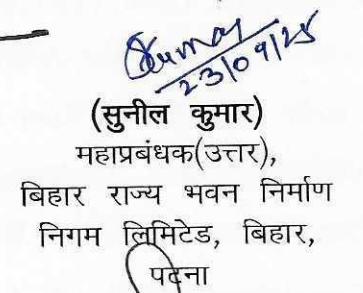 Kumar
23/09/25
(सुनील कुमार)
महाप्रबंधक(उत्तर),
बिहार राज्य भवन निर्माण
निगम लिमिटेड, बिहार,
पटना